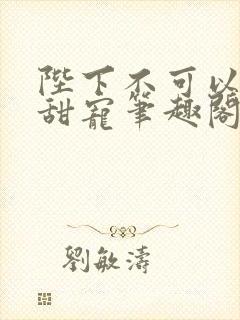 陛下不可以
甜寵筆趣閣
劉敏濤